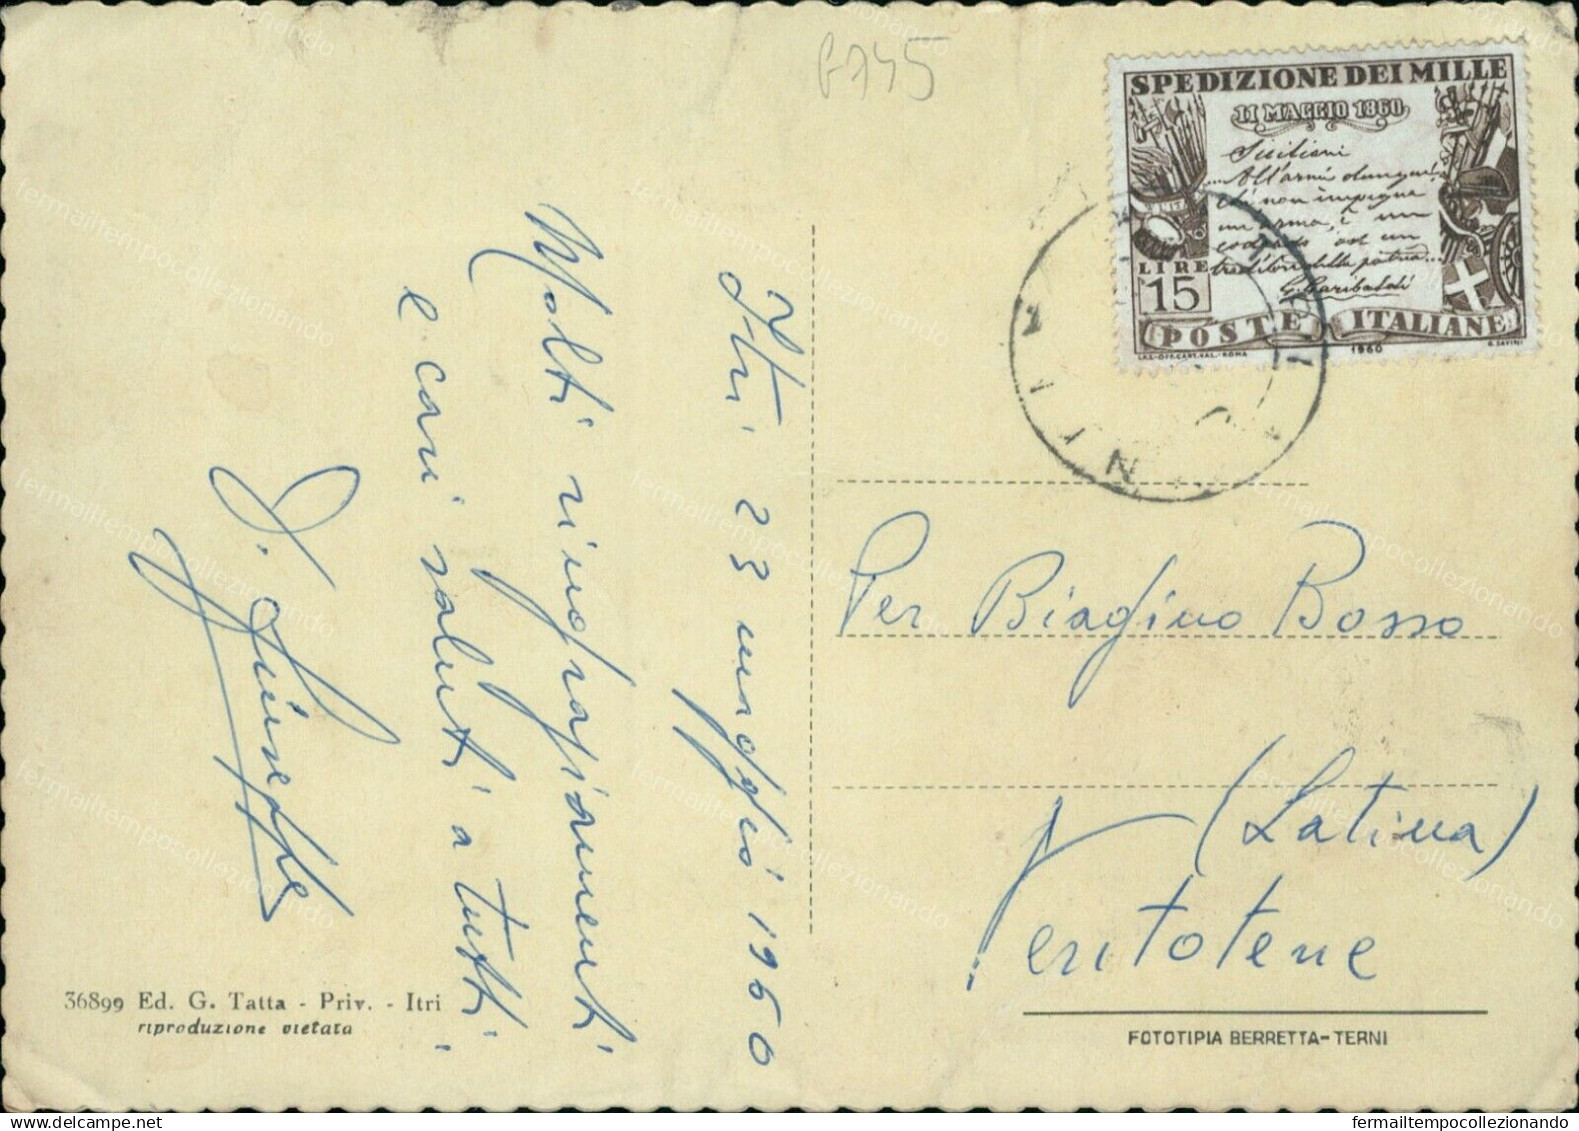 G745
SPEDIZIONE DEI MILLE
11 MAGGIO 1860
Siciliani
....All'armi dunque!
chi non impugna
un'arma, è un
codardo od un
traditore della patria...
G. Garibaldi
LIRE
15
POSTE ITALIANE
I.P.S.-OFF.CART.VAL.-ROMA
1960
G. SAVINI
Itri. 23 maggio 1960
Molti ringraziamenti
e cari saluti a tutti.
D. Giuseppe
36899 Ed. G. Tatta - Priv. - Itri
riproduzione vietata
Per Biagino Bosso
(Latina)
Ventotene
FOTOTIPIA BERRETTA-TERNI
fermailtempocollezionando
fermailtempocollezionando.com